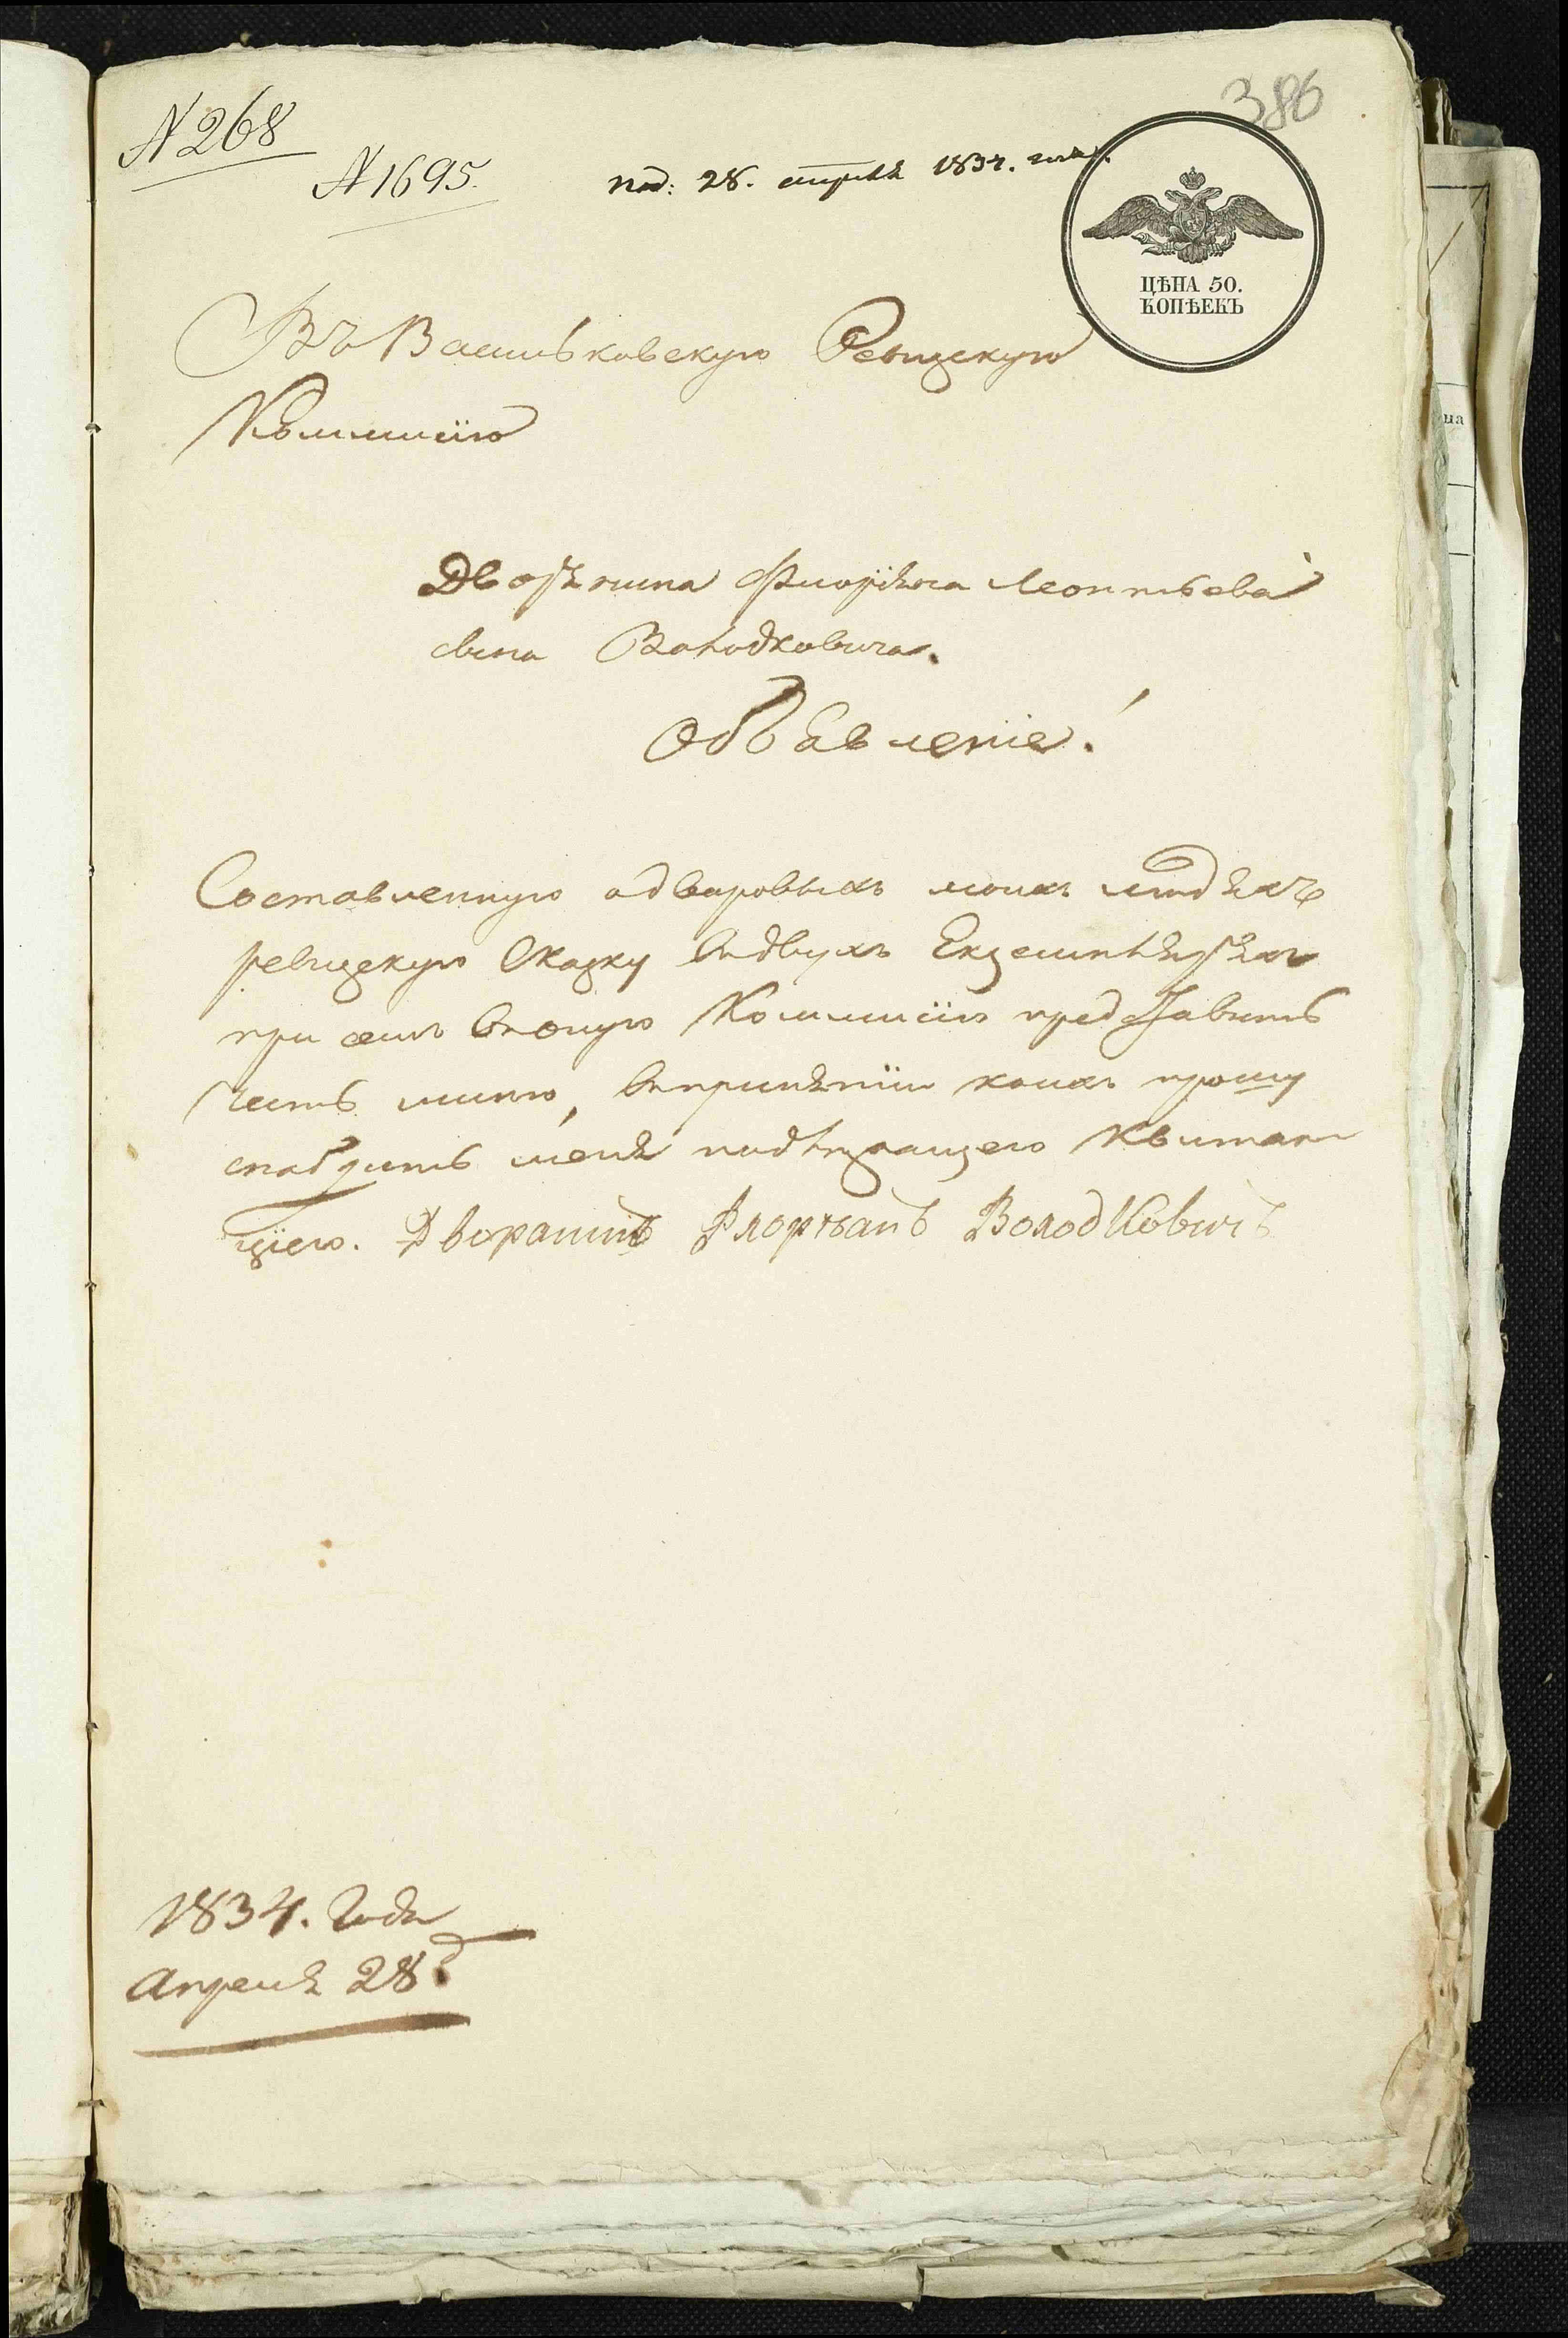 386
N 268
N 1695.
под: 28. апреля 1834. года.
ЦѢНА 50.
КОПѢЕКЪ
Въ Васильковскую Ревизскую
Коммисію
Дворянина Флоріяна Леонтьева
сына Володковича.
Объявленіе!
Составленную одворовыхъ моихъ людяхъ
ревизскую Сказку вдвухъ Екземплярахъ
при семъ воную Коммисію представить
честь имѣю, впринятіи коихъ прошу
снабдить меня надлежащею Квитан
цією. Дворанинъ Флорыанъ Володковичъ
1834. Года
Апреля 28 д
на